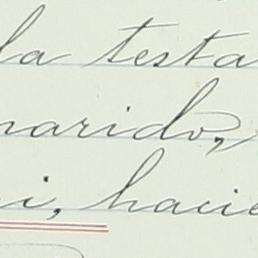 la testa
marido,
i, hacie